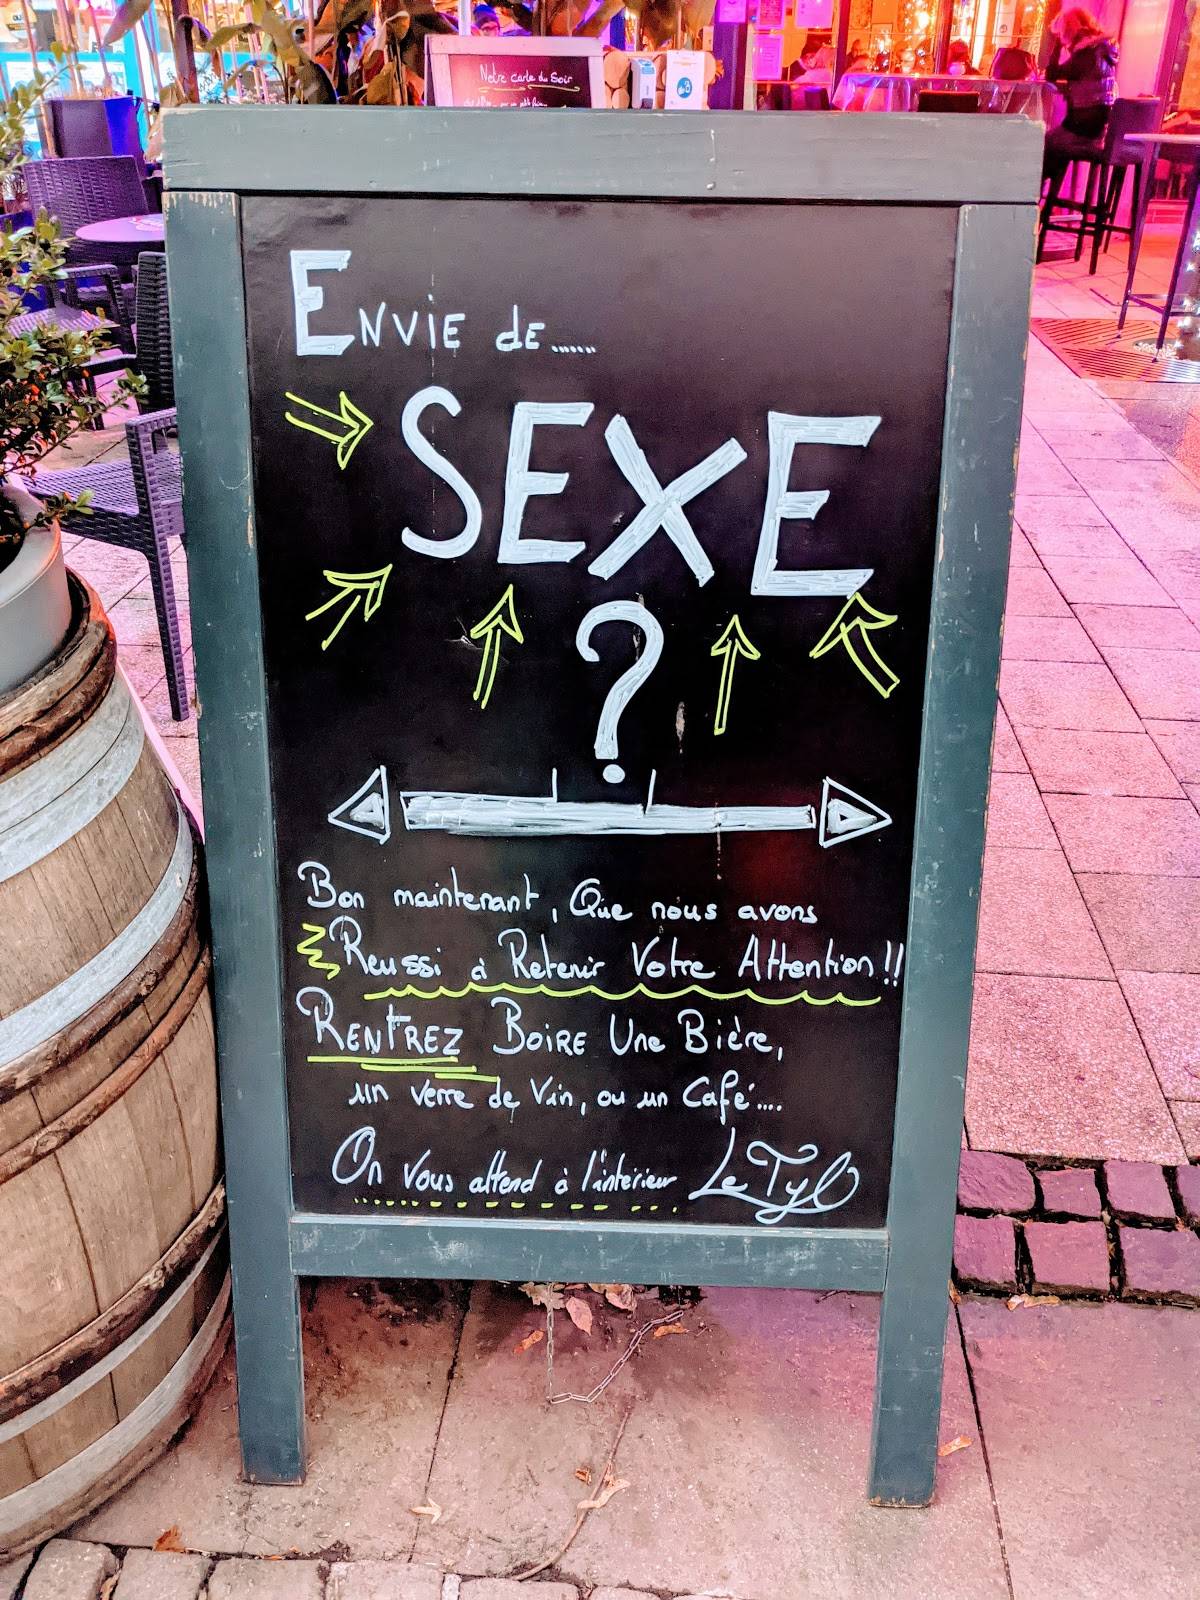 Notre carte du Soir
ENViE dE......
SEXE
?
Bon maintenant, Que nous avons
Reussi à Retenir Votre Attention!!
RENTREZ BOIRE Une Bière,
un verre de Vin, ou un Café....
On Vous attend à l'intérieur Le Tyl